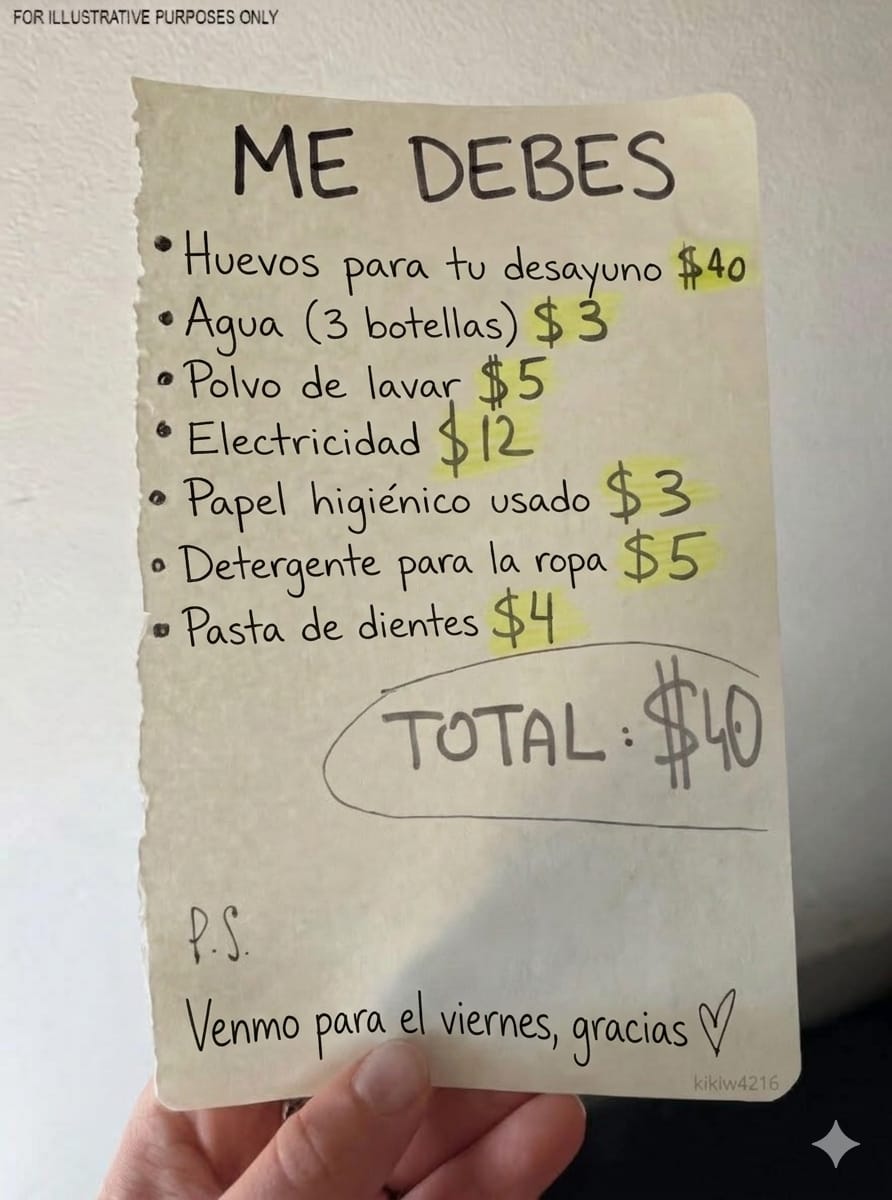 FOR ILLUSTRATIVE PURPOSES ONLY
ME DEBES
• Huevos para tu desayuno $40
• Agua (3 botellas) $3
• Polvo de lavar $5
• Electricidad $12
• Papel higiénico usado $3
• Detergente para la ropa $5
• Pasta de dientes $4
TOTAL: $40
P.S.
Venmo para el viernes, gracias ♡
kiklw4216